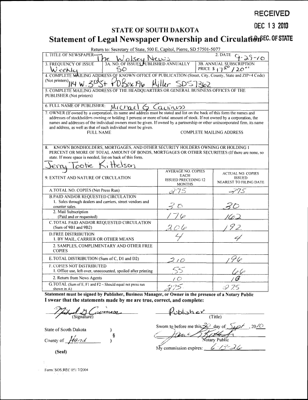 RECEIVED
DEC 13 2010
S.D. SEC. OF STATE
STATE OF SOUTH DAKOTA
Statement of Legal Newspaper Ownership and Circulation
Return to: Secretary of State, 500 E. Capitol, Pierre, SD 57501-5077
1. TITLE OF NEWSPAPER
The Wolsey News
2. DATE
9-27-10
3. FREQUENCY OF ISSUE
Weekly
3A. NO. OF ISSUES PUBLISHED ANNUALLY
50
3B. ANNUAL SUBSCRIPTION PRICE
4. COMPLETE MAILING ADDRESS OF KNOWN OFFICE OF PUBLICATION (Street, City, County, State and ZIP+4 Code) (Not printers)
5. COMPLETE MAILING ADDRESS OF THE HEADQUARTERS OF GENERAL BUSINESS OFFICES OF THE PUBLISHER (Not printer)
6. FULL NAME OF PUBLISHER:
7. OWNER (If owned by a corporation, its name and address must be stated and list on the back of this form the names and
addresses of stockholders owning or holding 1 percent or more of total amount of stock. If not owned by a corporation, the
names and addresses of the individual owners must be given. If owned by a partnership or other unincorporated firm, its name
and address, as well as that of each individual must be given.
FULL NAME
COMPLETE MAILING ADDRESS
8. KNOWN BONDHOLDERS, MORTGAGEES, AND OTHER SECURITY HOLDERS OWNING OR HOLDING 1
PERCENT OR MORE OF TOTAL AMOUNT OF BONDS, MORTGAGES OR OTHER SECURITIES (If there are none, so
state. If more space is needed, list on back of this form.
9. EXTENT AND NATURE OF CIRCULATION
AVERAGE NO. COPIES EACH ISSUED PRECEDING 12 MONTHS
ACTUAL NO. COPIES ISSUED NEAREST TO FILING DATE
A. TOTAL NO. COPIES (Net Press Run)
275
275
B. PAID AND/OR REQUESTED CIRCULATION
1. Sales through dealers and carriers, street vendors and counter sales.
30
30
2. Mail Subscription
(Paid and or requested)
176
162
C. TOTAL PAID AND/OR REQUESTED CIRCULATION
(Sum of 9B1 and 9B2)
206
192
D. FREE DISTRIBUTION
1. BY MAIL, CARRIER OR OTHER MEANS
4
4
2. SAMPLES, COMPLIMENTARY AND OTHER FREE COPIES
E. TOTAL DISTRIBUTION (Sum of C, D1 and D2)
210
196
F. COPIES NOT DISTRIBUTED
1. Office use, left over, unaccounted, spoiled after printing
55
2. Return from News Agents
10
G. TOTAL (Sum of E, F1 and F2 - Should equal net press run shown in A.)
275
275
Statement must be signed by Publisher, Business Manager, or Owner in the presence of a Notary Public
I swear that the statements made by me are true, correct, and complete:
(Signature)
Publisher
(Title)
State of South Dakota )
County of )
§
(Seal)
Sworn to before me this
Notary Public
My commission expires: